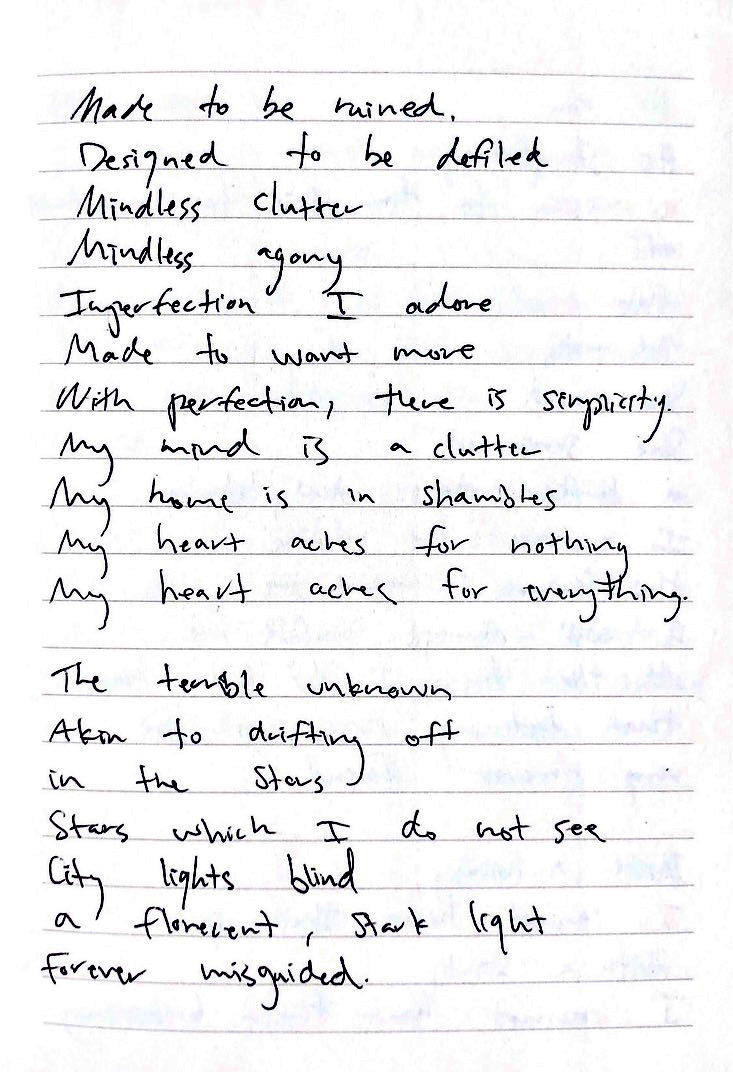 Made to be ruined.
Designed to be defiled
Mindless clutter
Mindless agony
Imperfection I adore
Made to want more
With perfection, there is simplicity.
My mind is a clutter
My home is in shambles
My heart aches for nothing
My heart aches for everything.
The terrible unknown
Akin to drifting off
in the stars
Stars which I do not see
City lights blind
a florecent, stark light
forever misguided.